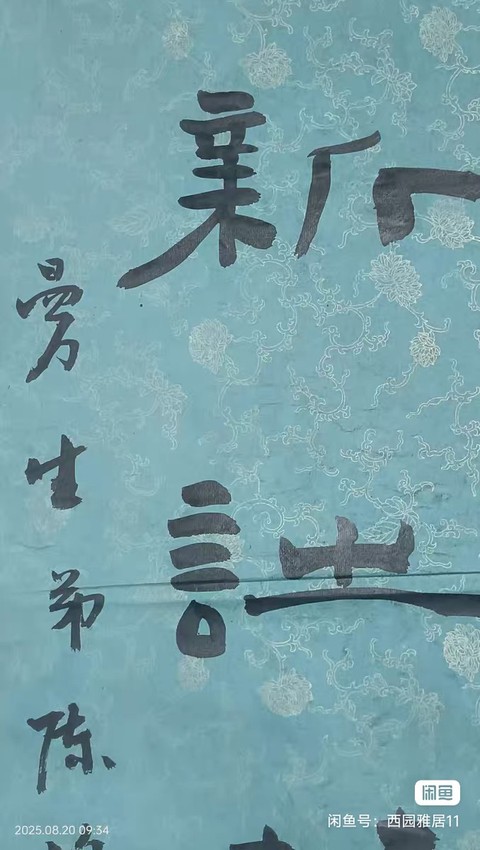 新
曼生弟陳
闲鱼
闲鱼号：西园雅居11
2025.08.20 09:34